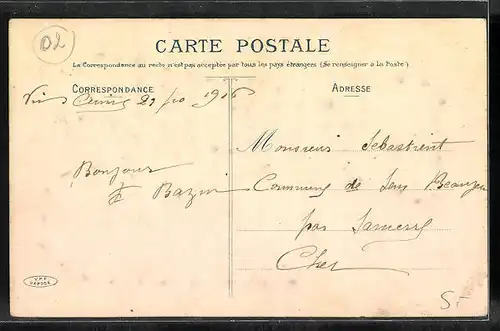 02
CARTE POSTALE
La Correspondance au recto n'est pas acceptée par tous les pays étrangers (Se renseigner à la Poste)
CORRESPONDANCE
ADRESSE
Monsieur Sebastient
Bonjour
Bazin
Commune de Sens Beaujeu
par Sancerre
Cher